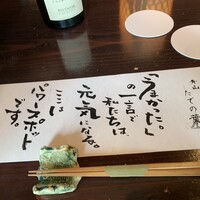 「旨かった。」
の一言で
私たちは、
元気になる。
ここは
パワースポット
です。
たての葉